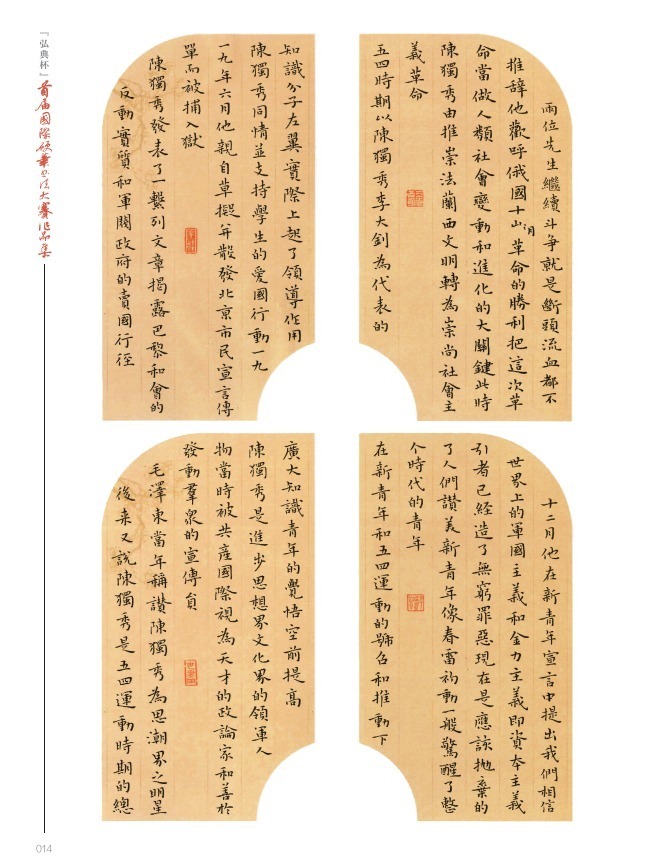 『弘典杯』首届國際硬筆書法大賽作品集
兩位先生繼續斗爭就是斷頭流血都不
推辞他歡呼俄國十月革命的勝利把這次革
命當做人類社會變動和進化的大關鍵此時
陳獨秀由推崇法蘭西文明轉為崇尚社會主
義革命
五四時期以陳獨秀李大釗為代表的
知識分子左翼實際上起了領導作用
陳獨秀同情並支持學生的愛國行動一九
一九年六月他親自草擬并散發北京市民宣言傳
單而被捕入獄
陳獨秀發表了一繫列文章揭露巴黎和會的
反動實質和軍閥政府的賣國行徑
十二月他在新青年宣言中提出我們相信
世界上的軍國主義和金力主義即資本主義
引者已經造了無窮罪惡現在是應該抛棄的
了人們讚美新青年像春雷初動一般驚醒了整
个時代的青年
在新青年和五四運動的號召和推動下
廣大知識青年的覺悟空前提高
陳獨秀是進步思想界文化界的領軍人
物當時被共產國際視為天才的政論家和善於
發動羣衆的宣傳員
毛澤東當年稱讚陳獨秀為思潮界之明星
後来又説陳獨秀是五四運動時期的總
014